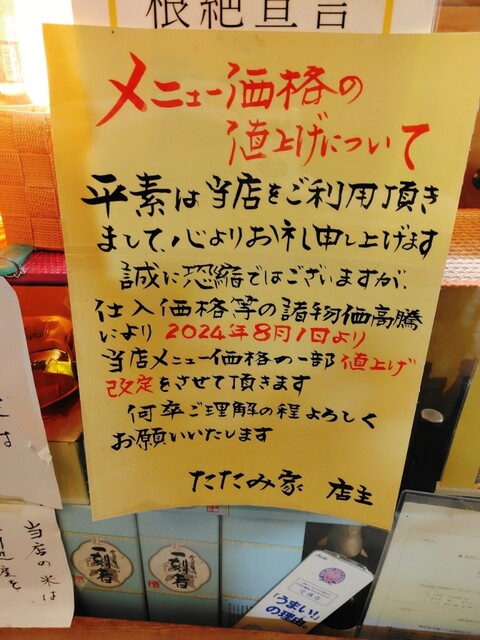 根絶宣言
メニュー価格の
値上げについて
平素は当店をご利用頂き
まして、心よりお礼申し上げます
誠に恐縮ではございますが、
仕入価格等の諸物価高騰
により 2024年8月1日より
当店メニュー価格の一部 値上げ
改定をさせて頂きます
何卒ご理解の程よろしく
お願いいたします
たたみ家 店主
当店の米は
一刻者
一刻者
「うまい!」
の理由